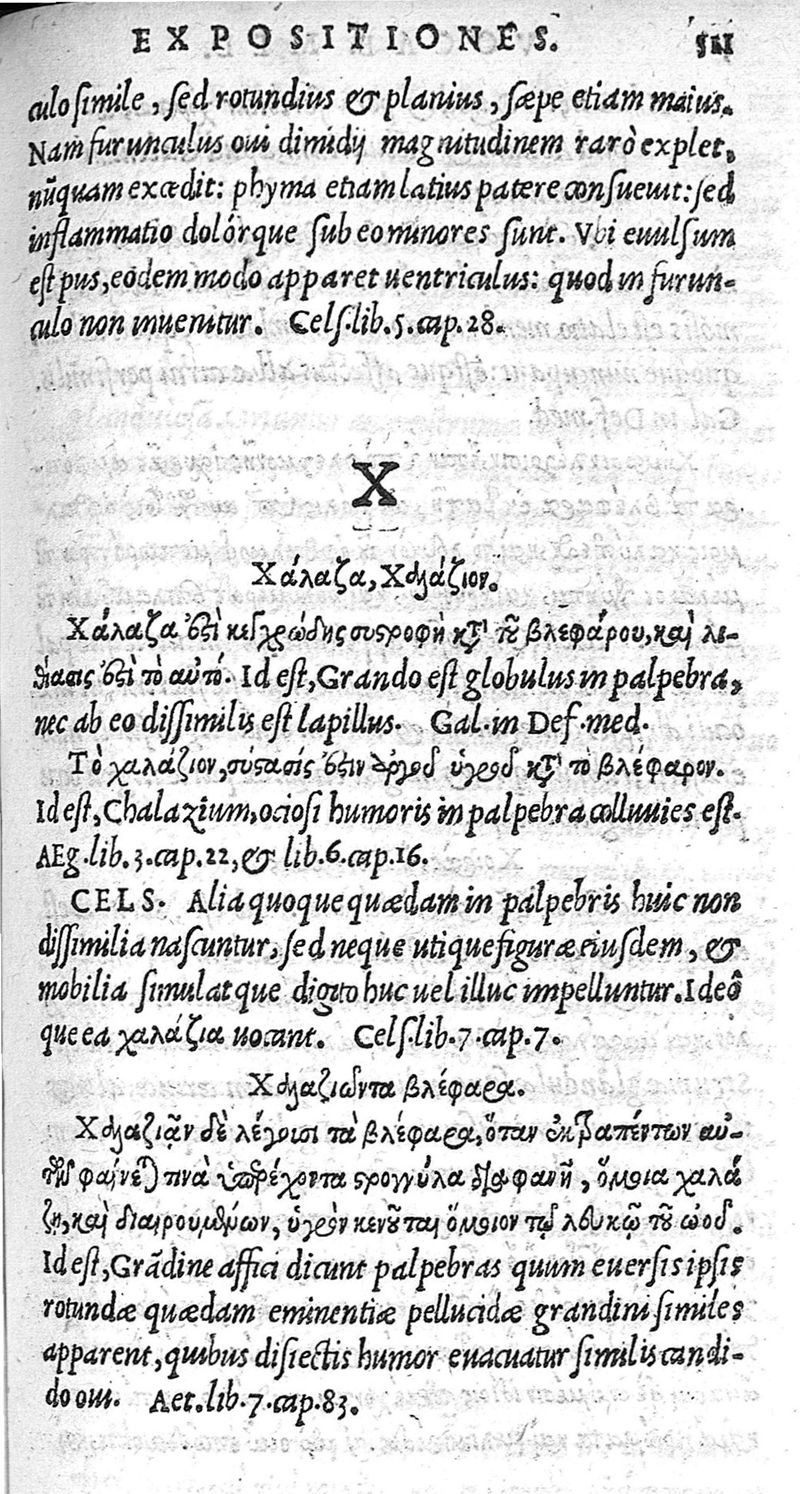 EXPOSITIONES.
culo simile, sed rotundius & planius, sæpe etiam maius.
Nam furunculus oui dimidij magnitudinem rarò explet,
nūquam excedit: phyma etiam latius patere consueuit: sed
inflammatio dolórque sub eo minores sunt. Vbi euulsum
est pus, eodem modo apparet uentriculus: quod in furun-
culo non inuenitur. Cels.lib.5.cap.28.
X
Χάλαζα, Χαλάζιον.
Χάλαζα ἐστὶ κεγχρώδης συστροφὴ κατὰ τοῦ βλεφάρου, καὶ λι-
θίασις ἐστὶ τὸ αὐτό. Id est, Grando est globulus in palpebra,
nec ab eo dissimilis est lapillus. Gal.in Def.med.
Τὸ χαλάζιον, σύστασίς ἐστιν ἀργοῦ ὑγροῦ κατὰ τὸ βλέφαρον.
Id est, Chalazium, ociosi humoris in palpebra colluuies est.
AEg.lib.3.cap.22, & lib.6.cap.16.
CELS. Alia quoque quædam in palpebris huic non
dissimilia nascuntur, sed neque utique figuræ eiusdem, &
mobilia simulatque digito huc uel illuc impelluntur. Ideo
que ea χαλάζια uocant. Cels.lib.7.cap.7.
Χαλαζιῶντα βλέφαρα.
Χαλαζιᾶν δὲ λέγουσι τὰ βλέφαρα, ὅταν ἐκστραπέντων αὐ-
τῶν φαίνεται τινὰ ὑπερέχοντα στρογγύλα διαφανῆ, ὅμοια χαλά
ζῃ, καὶ διαιρουμένων, ὑγρὸν κενοῦται ὅμοιον τῷ λευκῷ τοῦ ὠοῦ.
Id est, Grādine affici dicunt palpebras quum euersis ipsis
rotundæ quædam eminentiæ pellucidæ grandini similes
apparent, quibus disiectis humor euacuatur similis candi-
do oui. Aet.lib.7.cap.83.